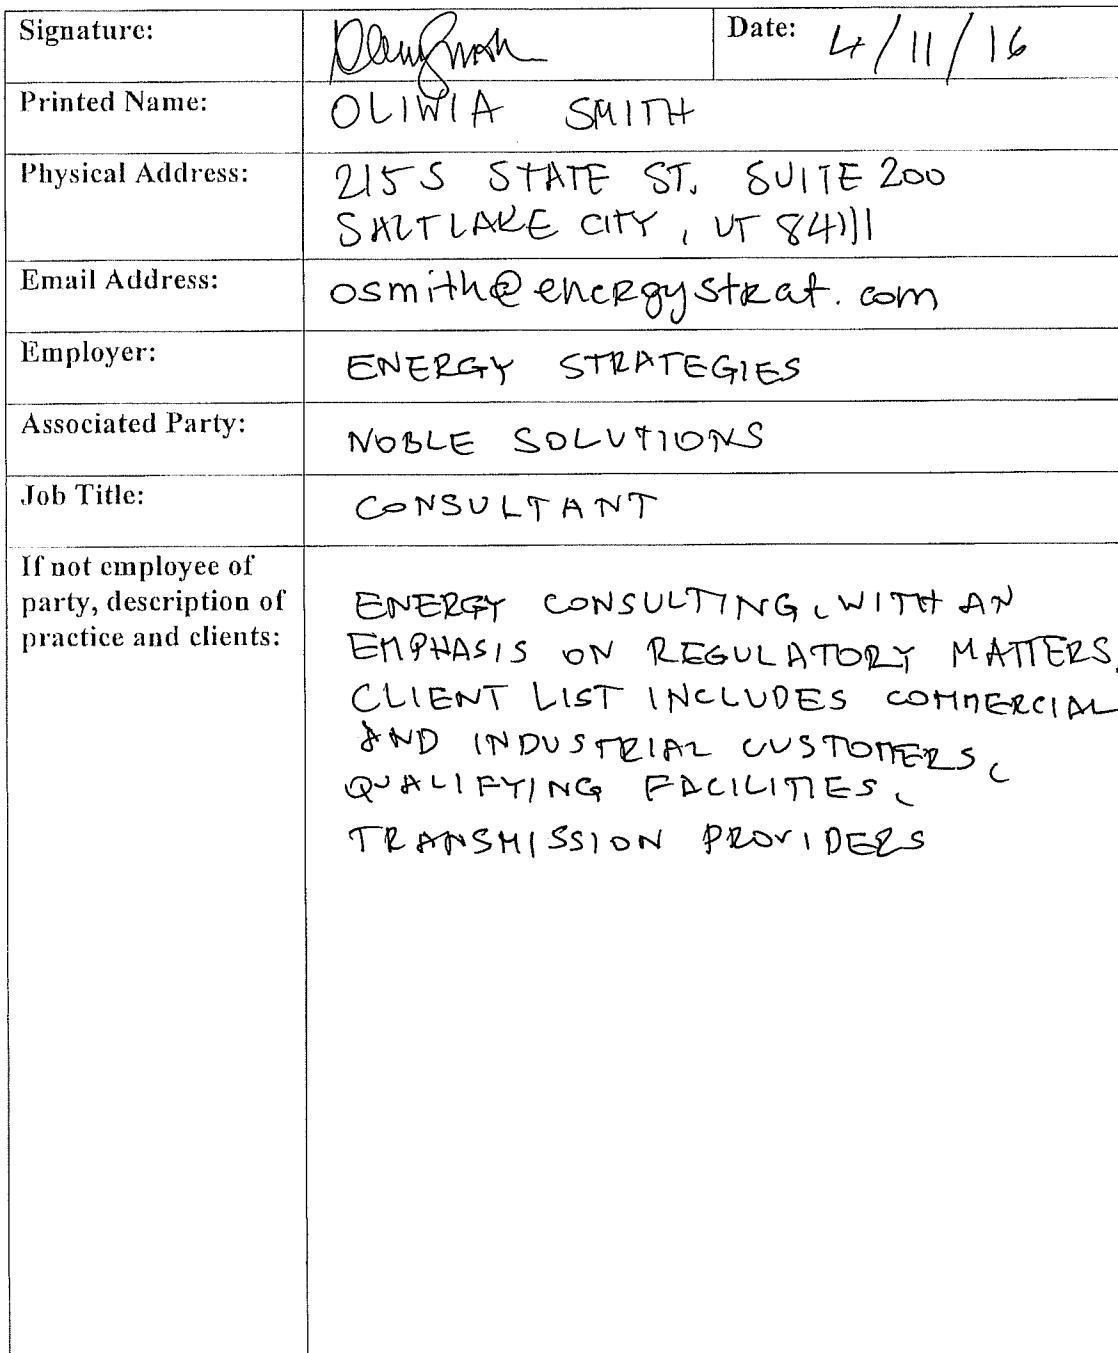 Signature:
Date: 4/11/16
Printed Name: OLIWIA SMITH
Physical Address: 215 S STATE ST. SUITE 200
SALT LAKE CITY, UT 84111
Email Address: osmith@energystrat.com
Employer: ENERGY STRATEGIES
Associated Party: NOBLE SOLUTIONS
Job Title: CONSULTANT
If not employee of
party, description of
practice and clients:
ENERGY CONSULTING, WITH AN
EMPHASIS ON REGULATORY MATTERS.
CLIENT LIST INCLUDES COMMERCIAL
AND INDUSTRIAL CUSTOMERS,
QUALIFYING FACILITIES,
TRANSMISSION PROVIDERS